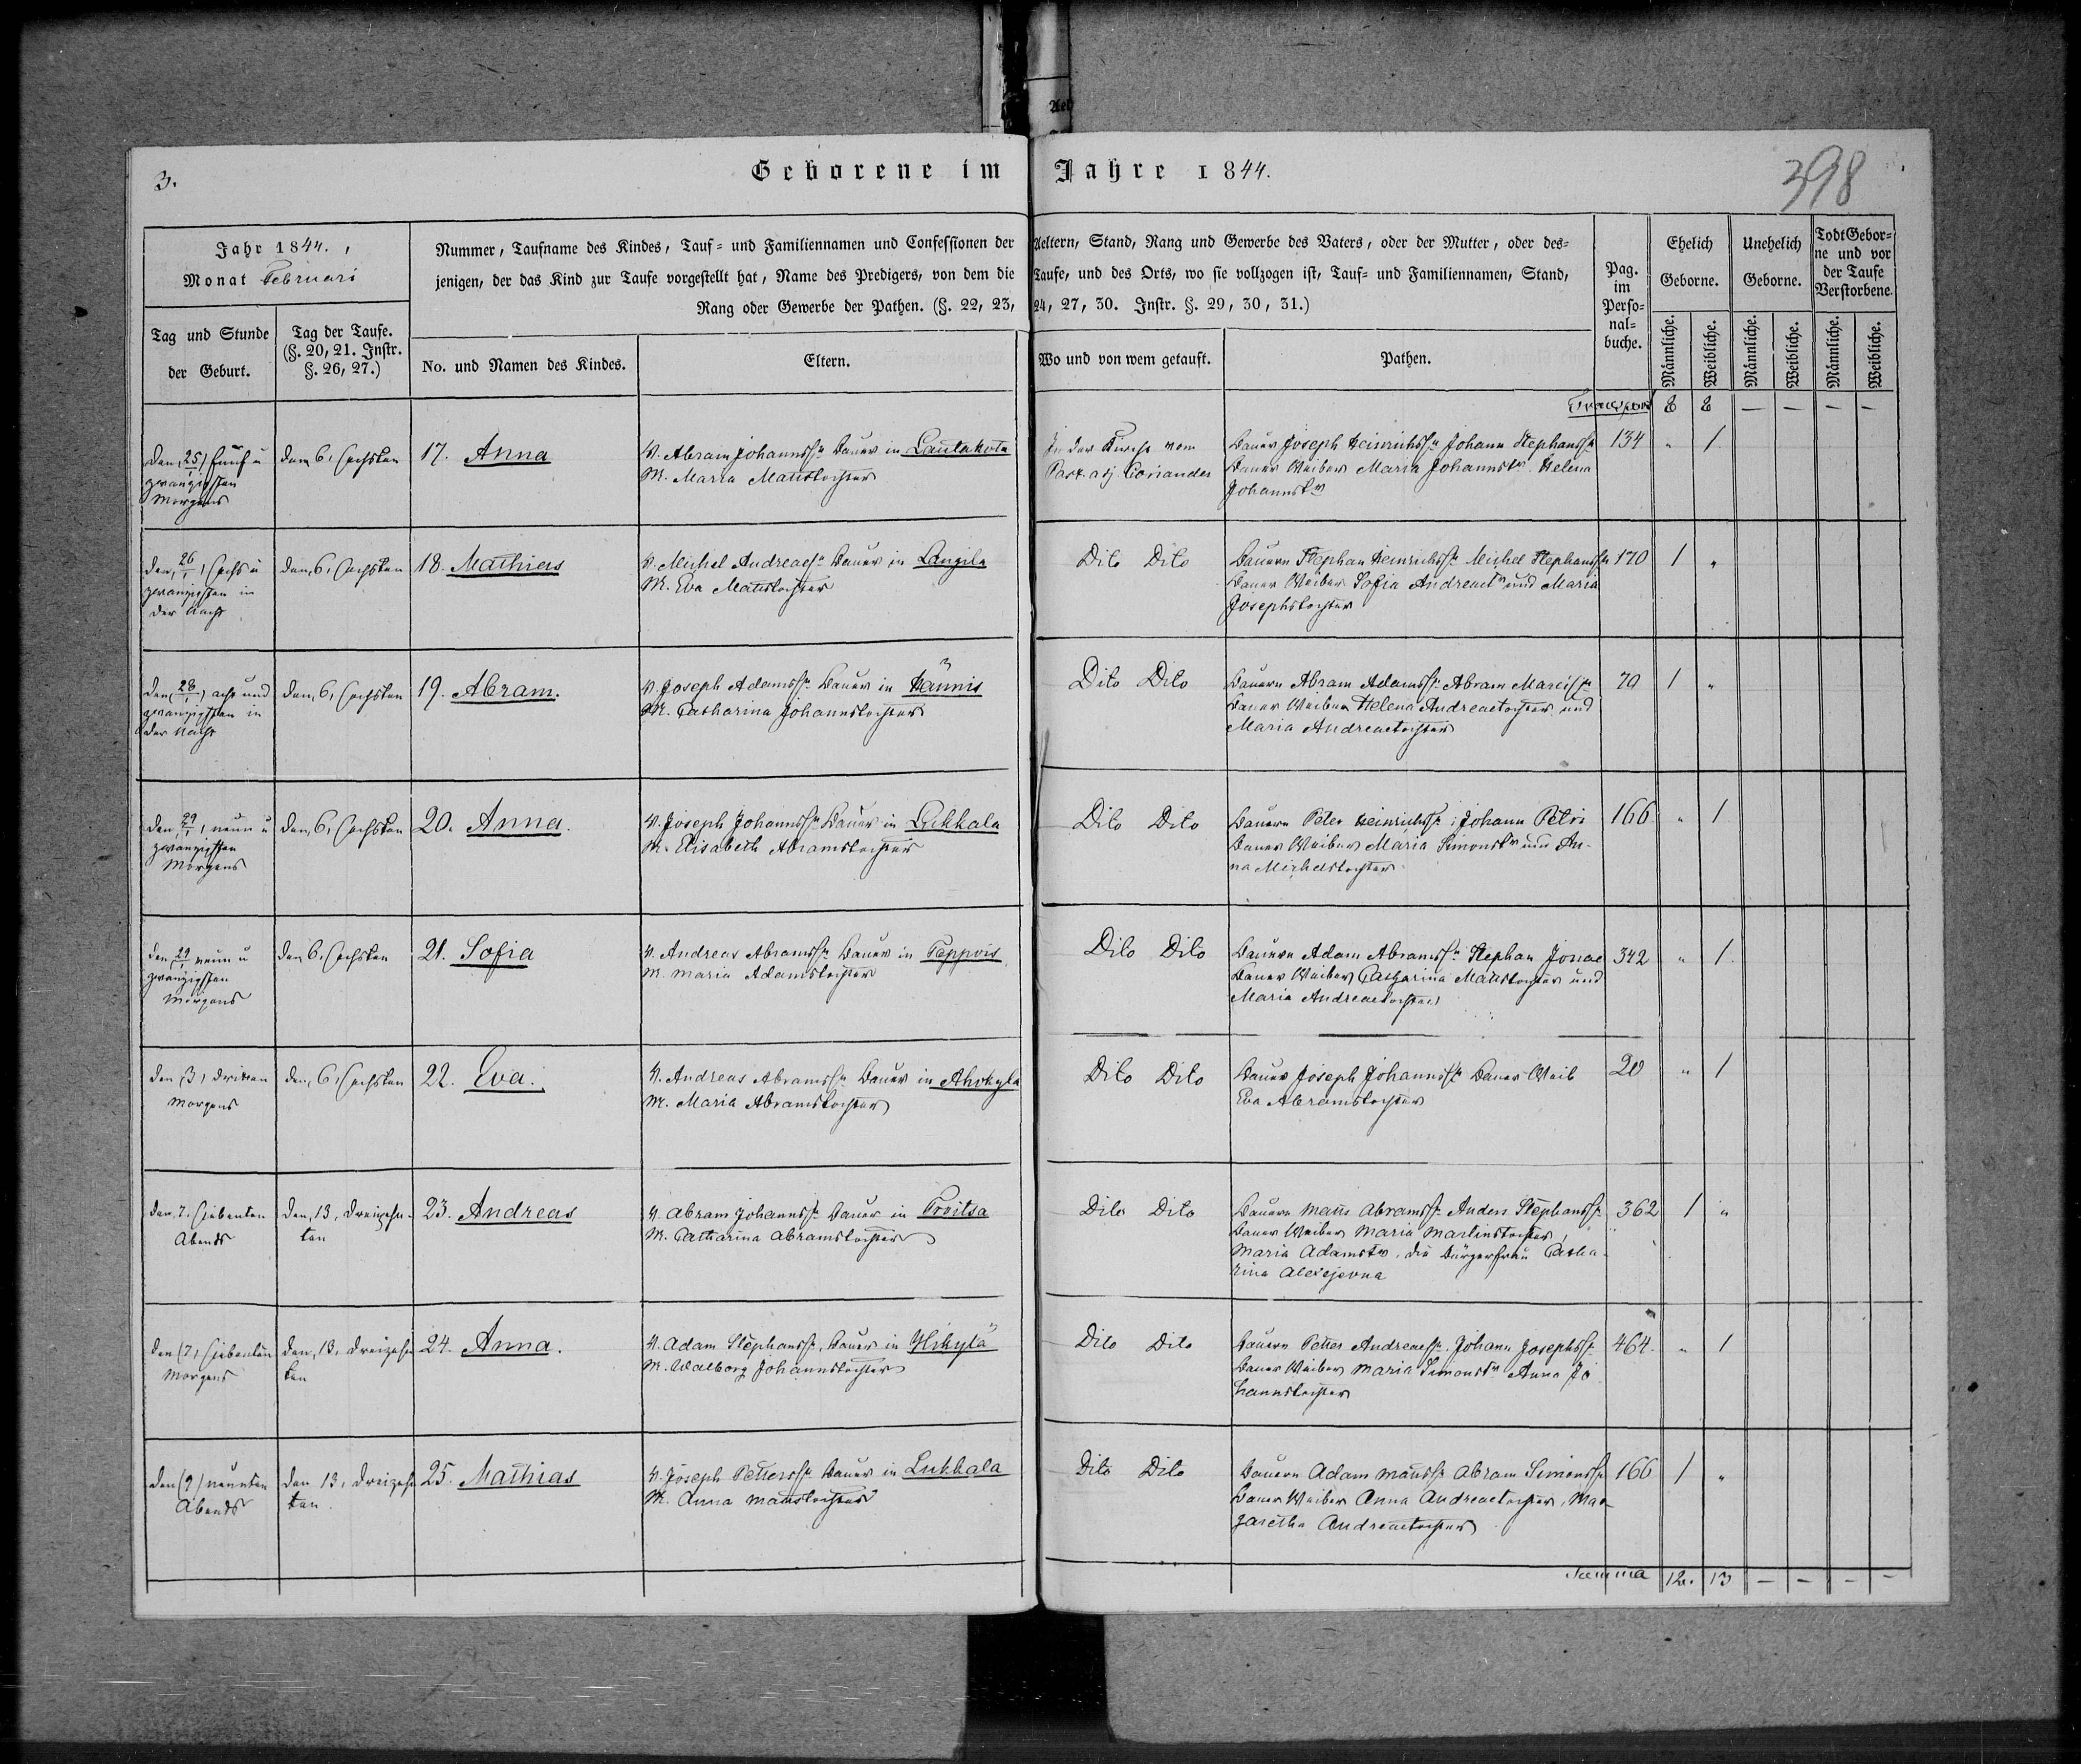 3.
Geborene im Jahre 1844.
398
Jahr 1844.
Monat Februari
Nummer, Taufname des Kindes, Tauf- und Familiennamen und Confessionen der Aeltern, Stand, Rang und Gewerbe des Vaters, oder der Mutter, oder des-
jenigen, der das Kind zur Taufe vorgestellt hat, Name des Predigers, von dem die Taufe, und des Orts, wo sie vollzogen ist, Tauf- und Familiennamen, Stand,
Rang oder Gewerbe der Pathen. (§. 22, 23, 24, 27, 30. Instr. §. 29, 30, 31.)
Pag.
im
Perso-
nal-
buche.
Ehelich
Geborne.
Unehelich
Geborne.
Todt Gebor-
ne und vor
der Taufe
Verstorbene.
Tag und Stunde
der Geburt.
Tag der Taufe.
(§. 20, 21. Instr.
§. 26, 27.)
No. und Namen des Kindes.
Eltern.
Wo und von wem getauft.
Pathen.
Männliche.
Weibliche.
Männliche.
Weibliche.
Männliche.
Weibliche.
Transport 8 8 — — — —
den 25/1 fünf u
zwanzigsten
Morgens
den 6, sechsten
17. Anna
V. Abram Johannssn Bauer in Lautakota
M. Maria Mattstochter
In der Kirche vom
Past. adj. Coriander
Bauer Joseph Heinrichssn Johann Stephanssn
Bauer Weiber Maria Johannstr Helena
Johannstr
134 " 1
den 26/1, sechs u
zwanzigsten in
der Nacht
den 6, sechsten
18. Mathias
V. Michel Andreaesn Bauer in Langila
M. Eva Mattstochter
Dito Dito
Bauern Stephan Heinrichssn Michel Stephanssn
Bauer Weiber Sofia Andreaetr und Maria
Josephstochter
170 1 "
den 28/1, acht und
zwanzigsten in
der Nacht
den 6, sechsten
19. Abram.
V. Joseph Adamssn Bauer in Hännis
M. Catharina Johannstochter
Dito Dito
Bauern Abram Adamssn Abram Marcissn
Bauer Weiber Helena Andreaetochter und
Maria Andreaetochter
70 1 "
den 29/1, neun u
zwanzigsten
Morgens
den 6, sechsten
20. Anna.
V. Joseph Johannssn Bauer in Lukkala
M. Elisabeth Abramstochter
Dito Dito
Bauern Peter Heinrichssn, Johann Petri
Bauer Weiber Maria Simonstr und An-
na Michelstochter
166 " 1
den 29/1 neun u
zwanzigsten
Morgens
den 6, sechsten
21. Sofia
V. Andreas Abramssn Bauer in Peppois
M. Maria Adamstochter
Dito Dito
Bauern Adam Abramssn Stephan Jonae
Bauer Weiber Catharina Mattstochter und
Maria Andreaetochter
342 " 1
den 3, dritten
Morgens
den 6, sechsten
22. Eva.
V. Andreas Abramssn Bauer in Ahokyla
M. Maria Abramstochter
Dito Dito
Bauer Joseph Johannssn Bauer Weib
Eva Abramstochter
20 " 1
den 7. siebenten
Abends
den 13, dreizehn-
ten
23. Andreas
V. Abram Johannssn Bauer in Troitsa
M. Catharina Abramstochter
Dito Dito
Bauern Matts Abramssn Anders Stephanssn
Bauer Weiber Maria Martinstochter,
Maria Adamstr, die Bürgerfrau Catha-
rina Alexejevna
362 1 "
den 7, siebenten
Morgens
den 13, dreizehn
ten
24. Anna.
V. Adam Stephanssn, Bauer in Ylikylä
M. Walborg Johannstochter
Dito Dito
Bauern Petter Andreaessn. Johann Josephssn
Bauer Weiber Maria Simonstr Anna Jo
hannstochter
464. " 1
den 9 neunten
Abends
den 13, dreizehn
ten
25. Mathias
V. Joseph Petterssn Bauer in Lukkala
M. Anna Mattstochter
Dito Dito
Bauern Adam Mattssn Abram Simonssn
Bauer Weiber Anna Andreaetochter, Mar
garetha Andreaetochter
166 1 "
Summa 12. 13 — — — —